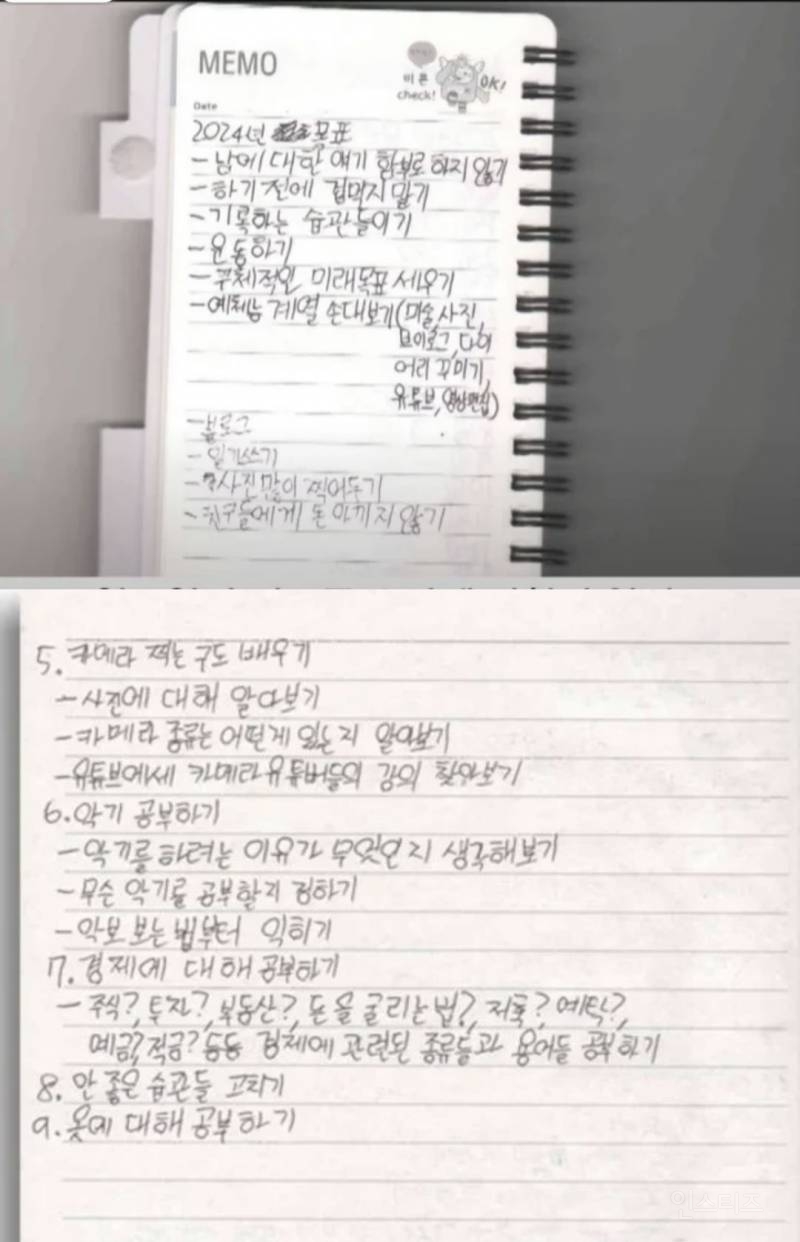 MEMO
비 론
check!
OK!
Date
2024년 목표
- 남에 대한 얘기 함부로 하지 않기
- 하기 전에 겁먹지 말기
- 기록하는 습관들이기
- 운동하기
- 구체적인 미래목표 세우기
- 예체능 계열 손대보기(미술, 사진,
브이로그, 다이
어리 꾸미기,
유튜브, 영상편집)
- 블로그
- 일기쓰기
- 사진 많이 찍어두기
- 친구들에게 돈 아끼지 않기
5. 카메라 찍는 구도 배우기
- 사진에 대해 알아보기
- 카메라 종류는 어떤게 있는지 알아보기
- 유튜브에세 카메라 유튜버들의 강의 찾아보기
6. 악기 공부하기
- 악기를 하려는 이유가 무엇인지 생각해보기
- 무슨 악기를 공부할지 정하기
- 악보 보는 법부터 익히기
7. 경제에 대해 공부하기
- 주식?, 투자?, 부동산?, 돈을 굴리는 법?, 저축?, 예탁?,
예금?, 적금? 등등 경제에 관련된 종류들과 용어들 공부하기
8. 안 좋은 습관들 고치기
9. 옷에 대해 공부하기
인스티즈